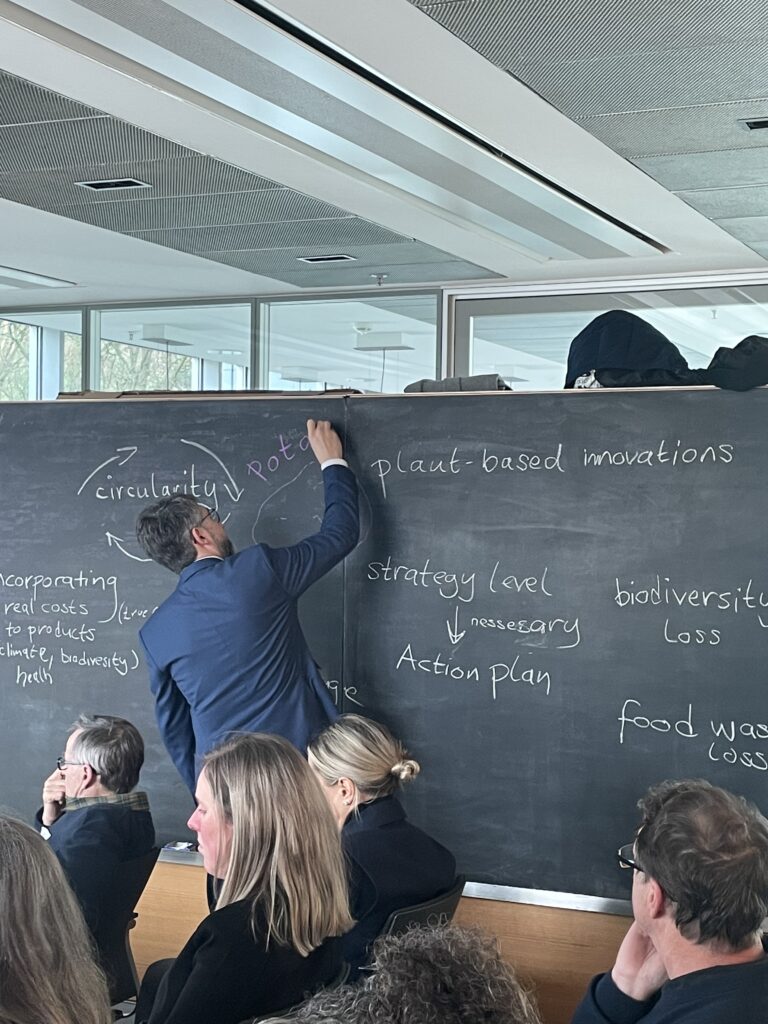 circularity
pota
plant-based innovations
ncorporating
real costs
to products
climate, biodiversity)
health
(true
strategy level
nessesary
Action plan
ge
biodiversity
Loss
food was
Loss